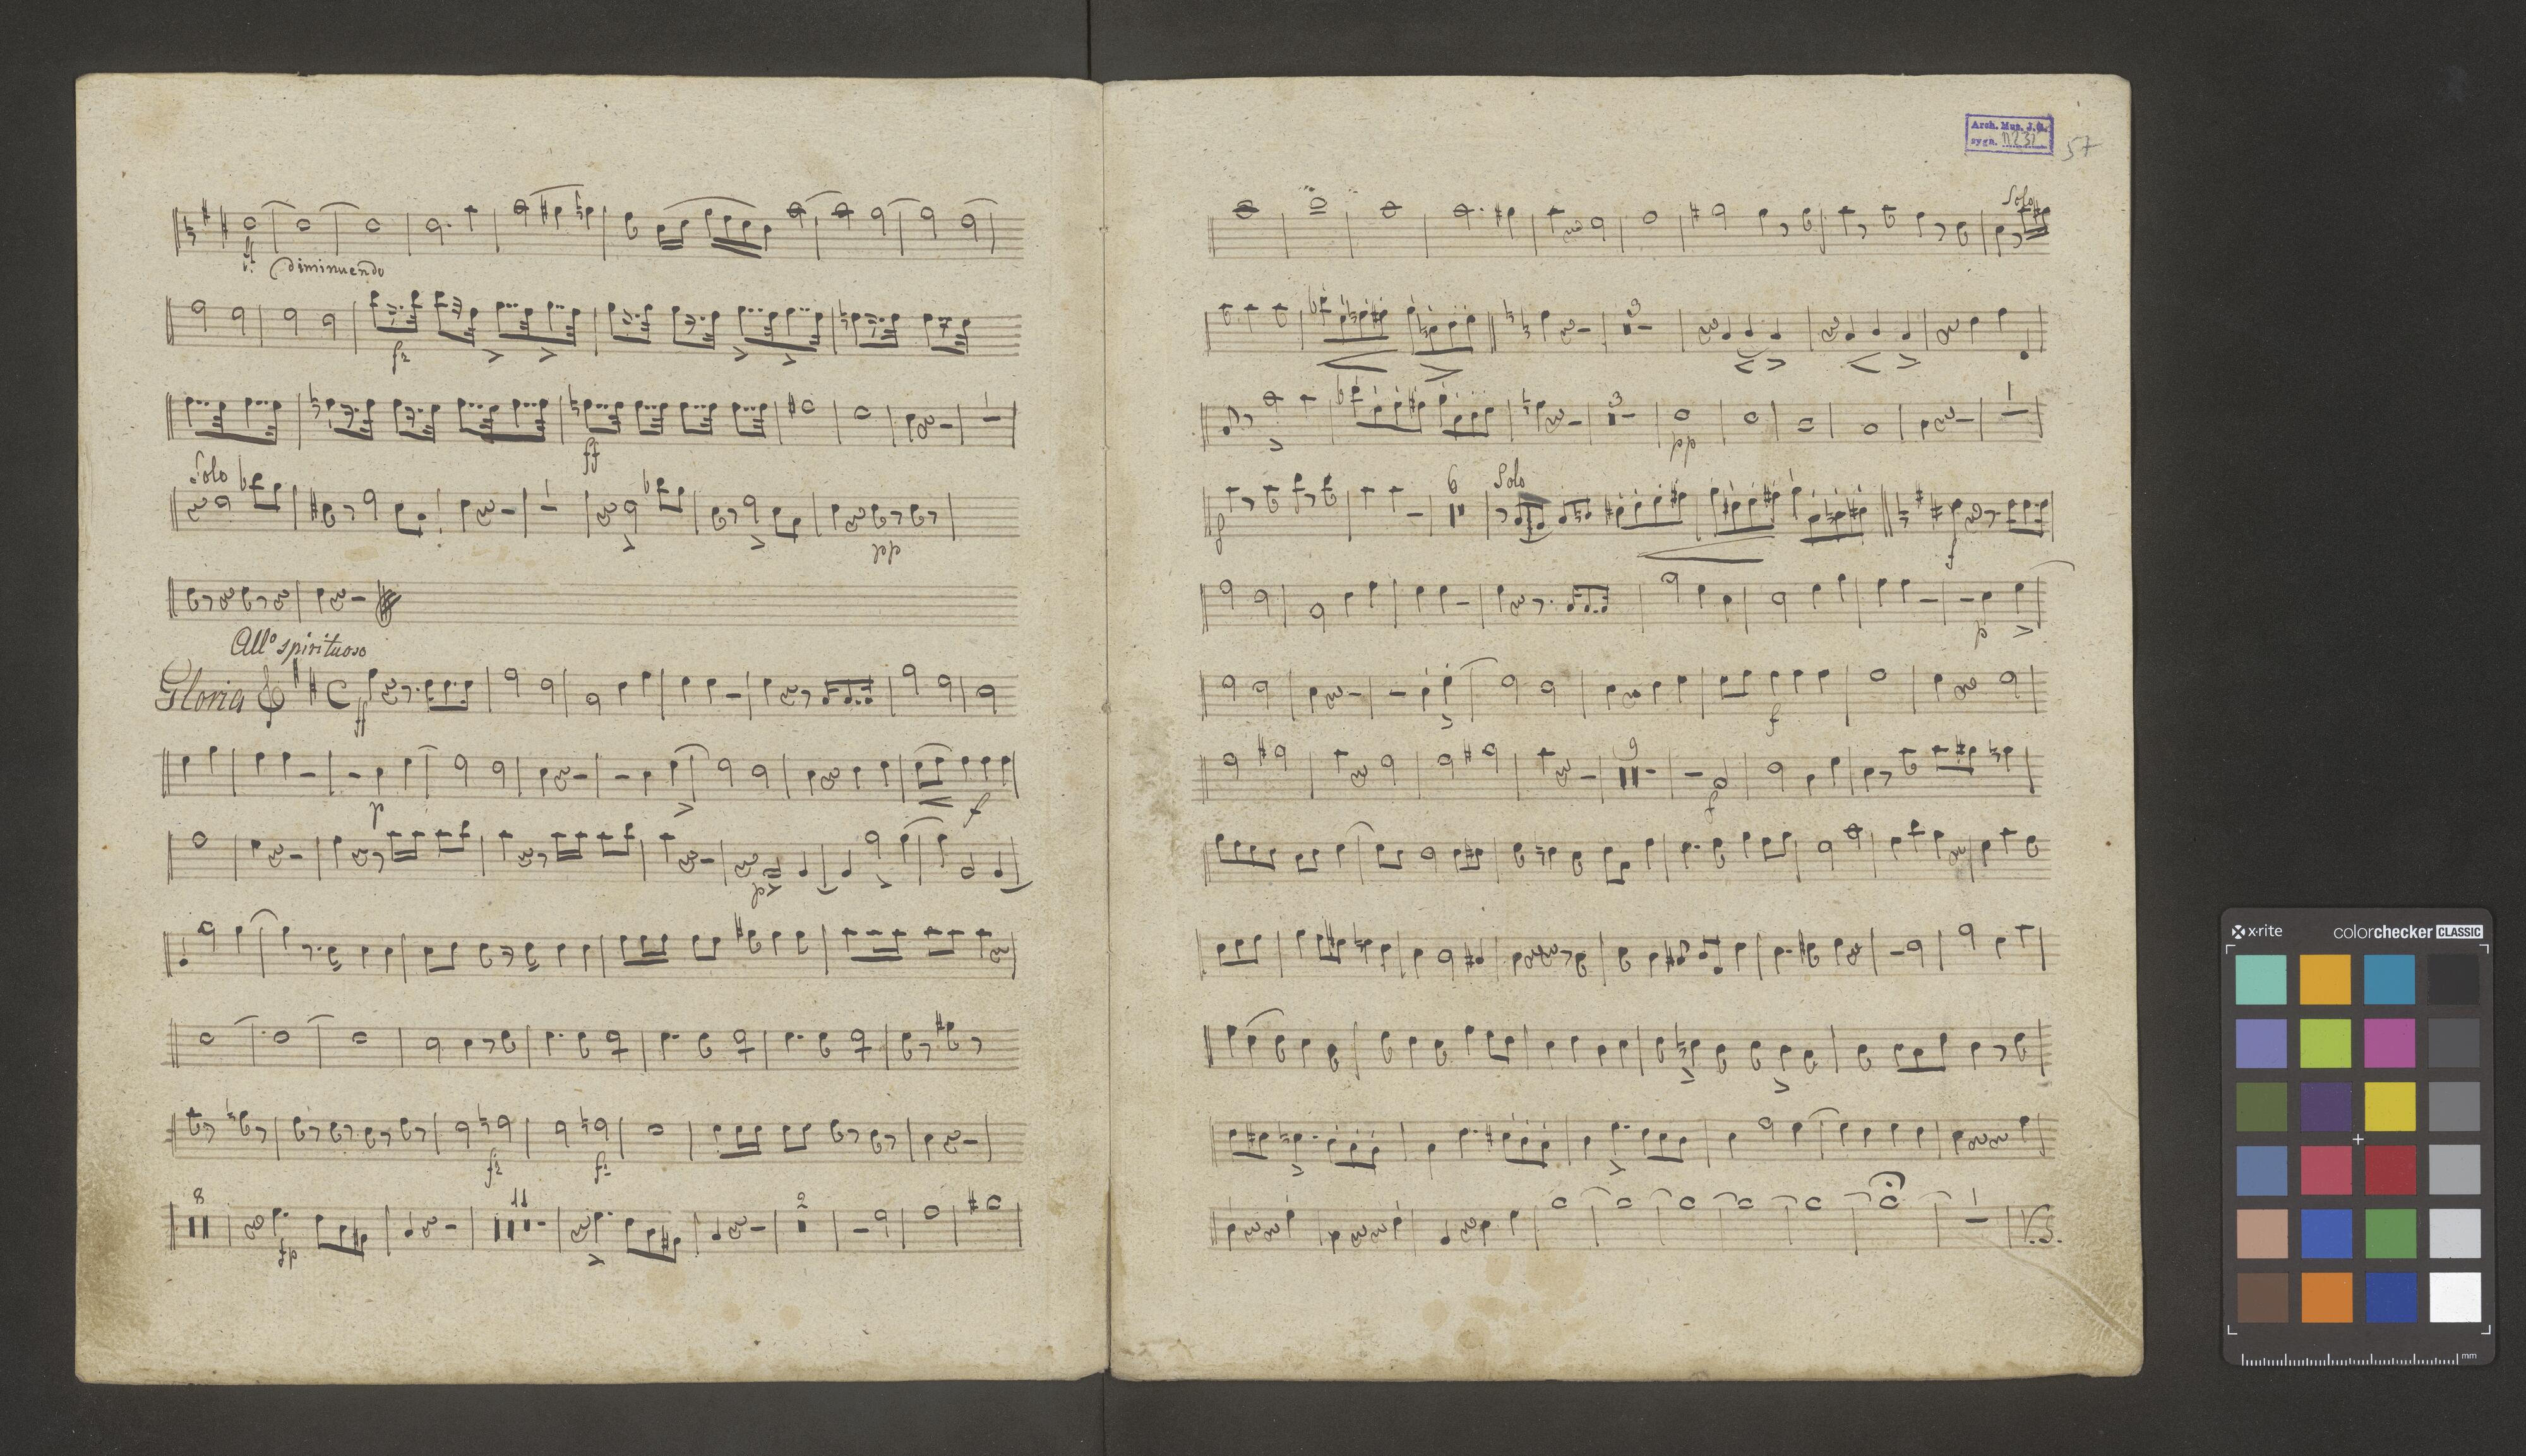 ff diminuendo
fz
ff
Solo
pp
All° spirituoso
Gloria
ff
p
f
p
fz fz
8 11 2
fp
Arch. Mus. J.G.
sygn.
57
Solo
3
3
pp
6 Solo
f
f
p
f
9
f
V.S.
x-rite colorchecker CLASSIC
mm